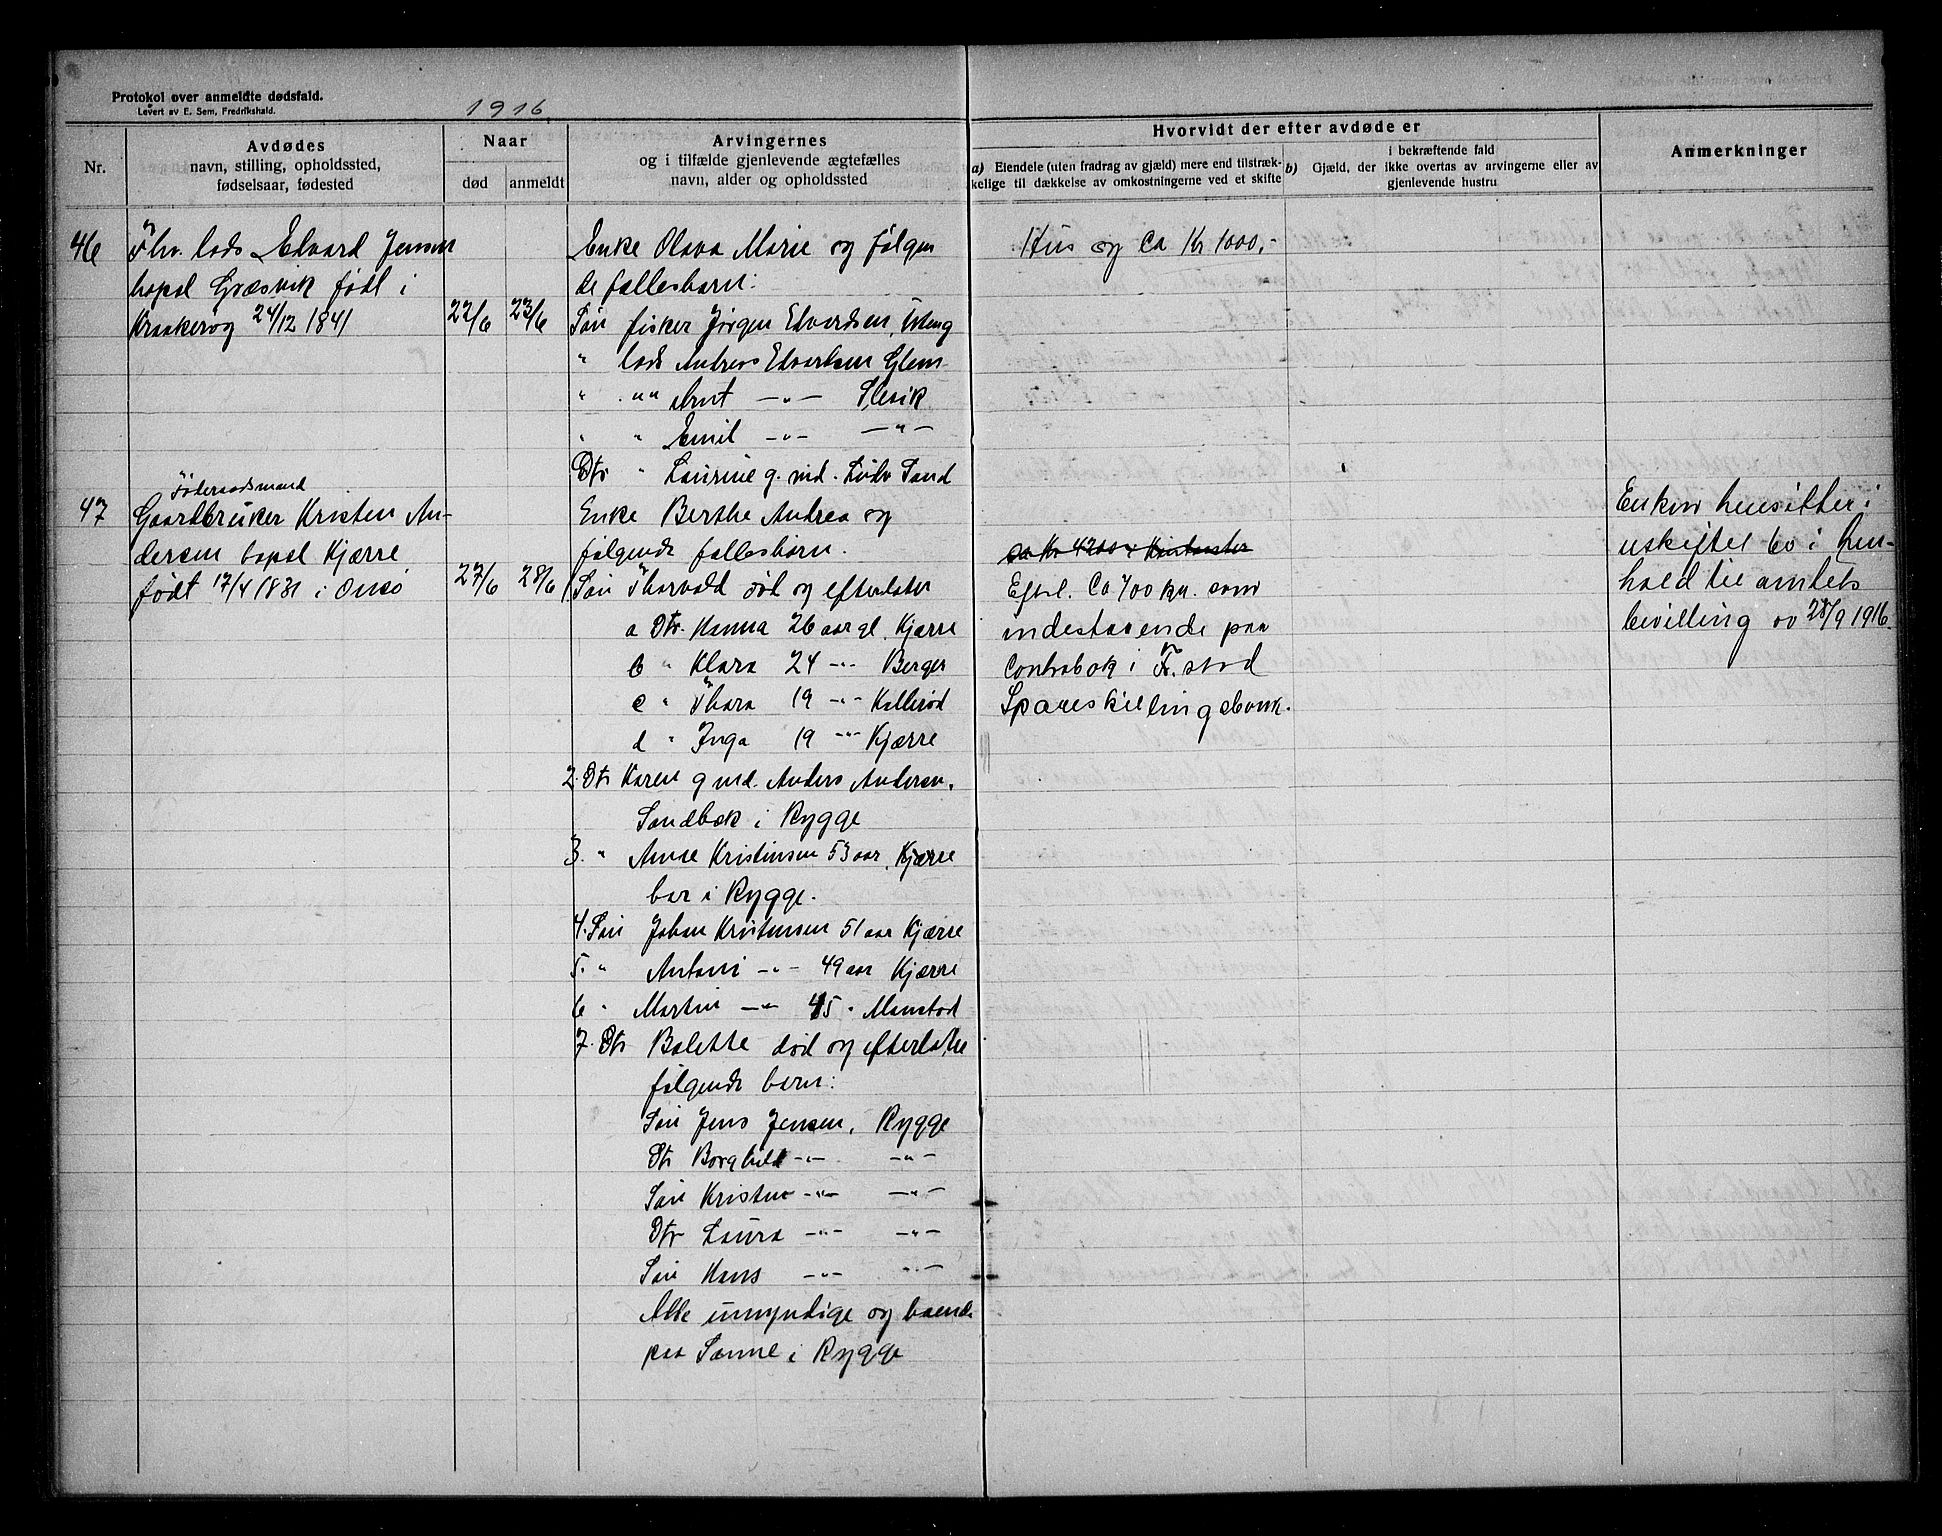 Protokol over anmeldte dødsfald.
Levert av E. Sem, Fredrikshald.
1916.
Nr.
Avdødes
navn, stilling, opholdssted,
fødselsaar, fødested
Naar
død
anmeldt
Arvingernes
og i tilfælde gjenlevende ægtefælles
navn, alder og opholdssted
Hvorvidt der efter avdøde er
a) Eiendele (uten fradrag av gjæld) mere end tilstræk-
kelige til dækkelse av omkostningerne ved et skifte
i bekræftende fald
b) Gjæld, der ikke overtas av arvingerne eller av
gjenlevende hustru
Anmerkninger
46
Fhv. lods Edvard Jensen
bopæl Græsvik født i
Kraakerøy 24/12 1841
22/6
23/6
Enke Olava Marie og følgen
de fællesbarn:
Søn fisker Jørgen Edvardsen,
" lods Andreas Edvardsen Glem
" "" Arnt —"— Slevik
" " Emil —"— —"—
Dtr " Laurine g. md. Ludv Sand
Hus og Ca Kr 1000,-
47
Føderaadsmand
Gaardbruker Kristen An-
dersen bopæl Kjærre
født 17/4 1831 i Onsø
27/6
28/6
Enke Berthe Andrea og
følgende fællesbarn.
1 Søn Thorvald død og efterlater
a Dtr. Hanna 26 aar gl. Kjærre
b " Klara 24 -"- Berger
c " Thora 19 -"- Kallerød
d " Inga 19 -"- Kjærre
2. Dtr Karen g md. Anders Andersen.
Sandbæk i Rygge
3. " Anne Kristensen 53 aar, Kjærre
bor i Rygge.
4. Søn Johan Kristensen 51 aar Kjærre
5. " Antoni -"- 49 aar Kjærre
6 " Martin —"— 45 "
7. Dtr Balette død og efterlatt
følgende barn:
Søn Jens Jensen, Rygge
Dtr Borghild -"- -"-
Søn Kristen -"- -"-
Dtr Laura -"- -"-
Søn Hans -"- -"-
Alle umyndige og boende
paa Sanne i Rygge
ca Kr 4200
Efterl. Ca 700 kr. som
indestaaende paa
Contrabok i Fr.stad
Spareskillingsbank.
Enken hensitter i
uskiftet bo i hen-
hold til amtets
bevilling av 28/9 1916.